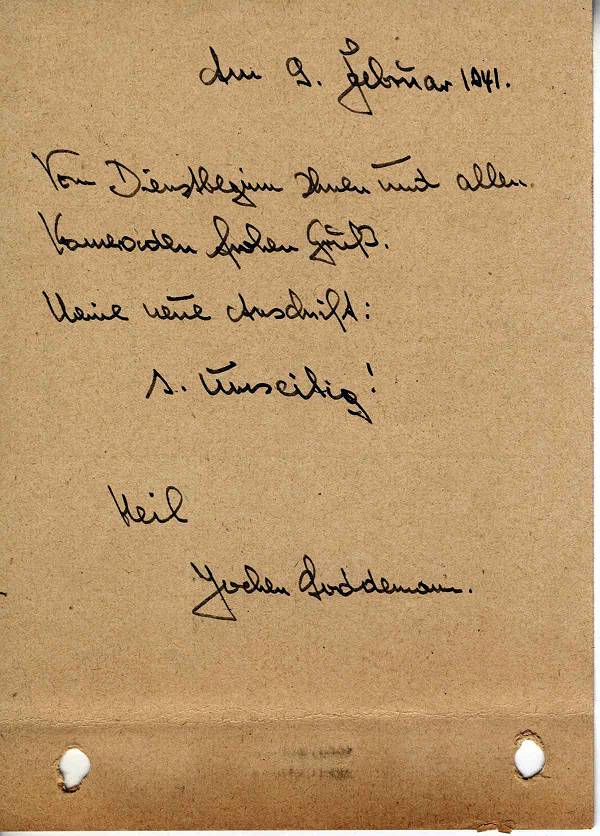 Am 9. Februar 1941.
Vom Dienstbeginn Ihnen und allen
Kameraden frohen Gruß.
Meine neue Anschrift:
s. Umseitig!
Heil
Jochen